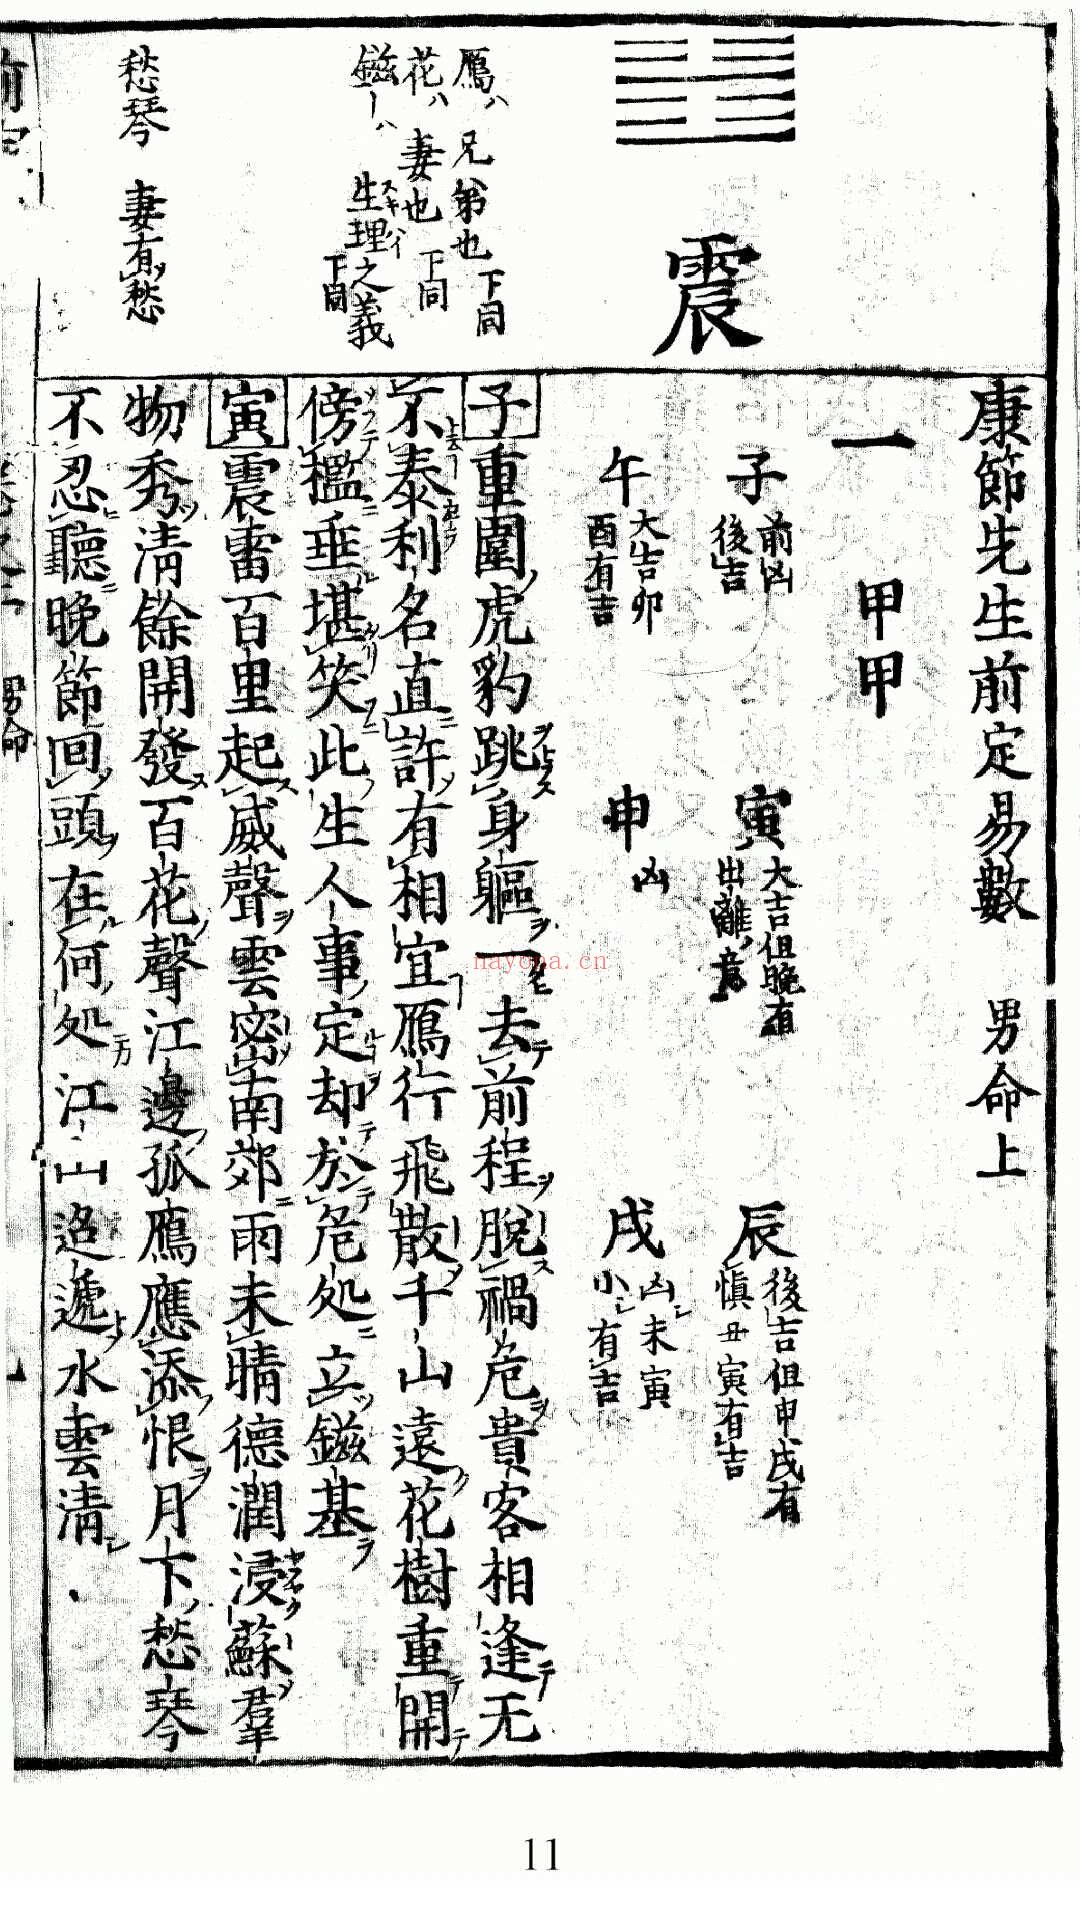 震
雁ハ兄弟也下同
花ハ妻也下同
鎡ーハ生理之義下同
愁琴 妻有愁
康節先生前定易數 男命上
一 甲甲
子 前凶後吉
寅 大吉但晚有出離ノ意
辰 後吉但申戌有慎丑寅有吉
午 大吉卯酉有吉
申 凶
戌 凶未寅小有吉
子重圍虎豹跳身軀一去前程脫禍危貴客相逢无
不泰利名直許有相宜雁行飛散千山遠花樹重開
傍檻垂堪笑此生人事定却於危処立鎡基
寅震畜百里起威聲雲密南郊雨未晴德潤浸蘇羣
物秀清餘開發百花聲江邊孤鴈應添恨月下愁琴
不忍聽晚節回頭在何処江山迢遞水雲清
男命
nayona.cn
11